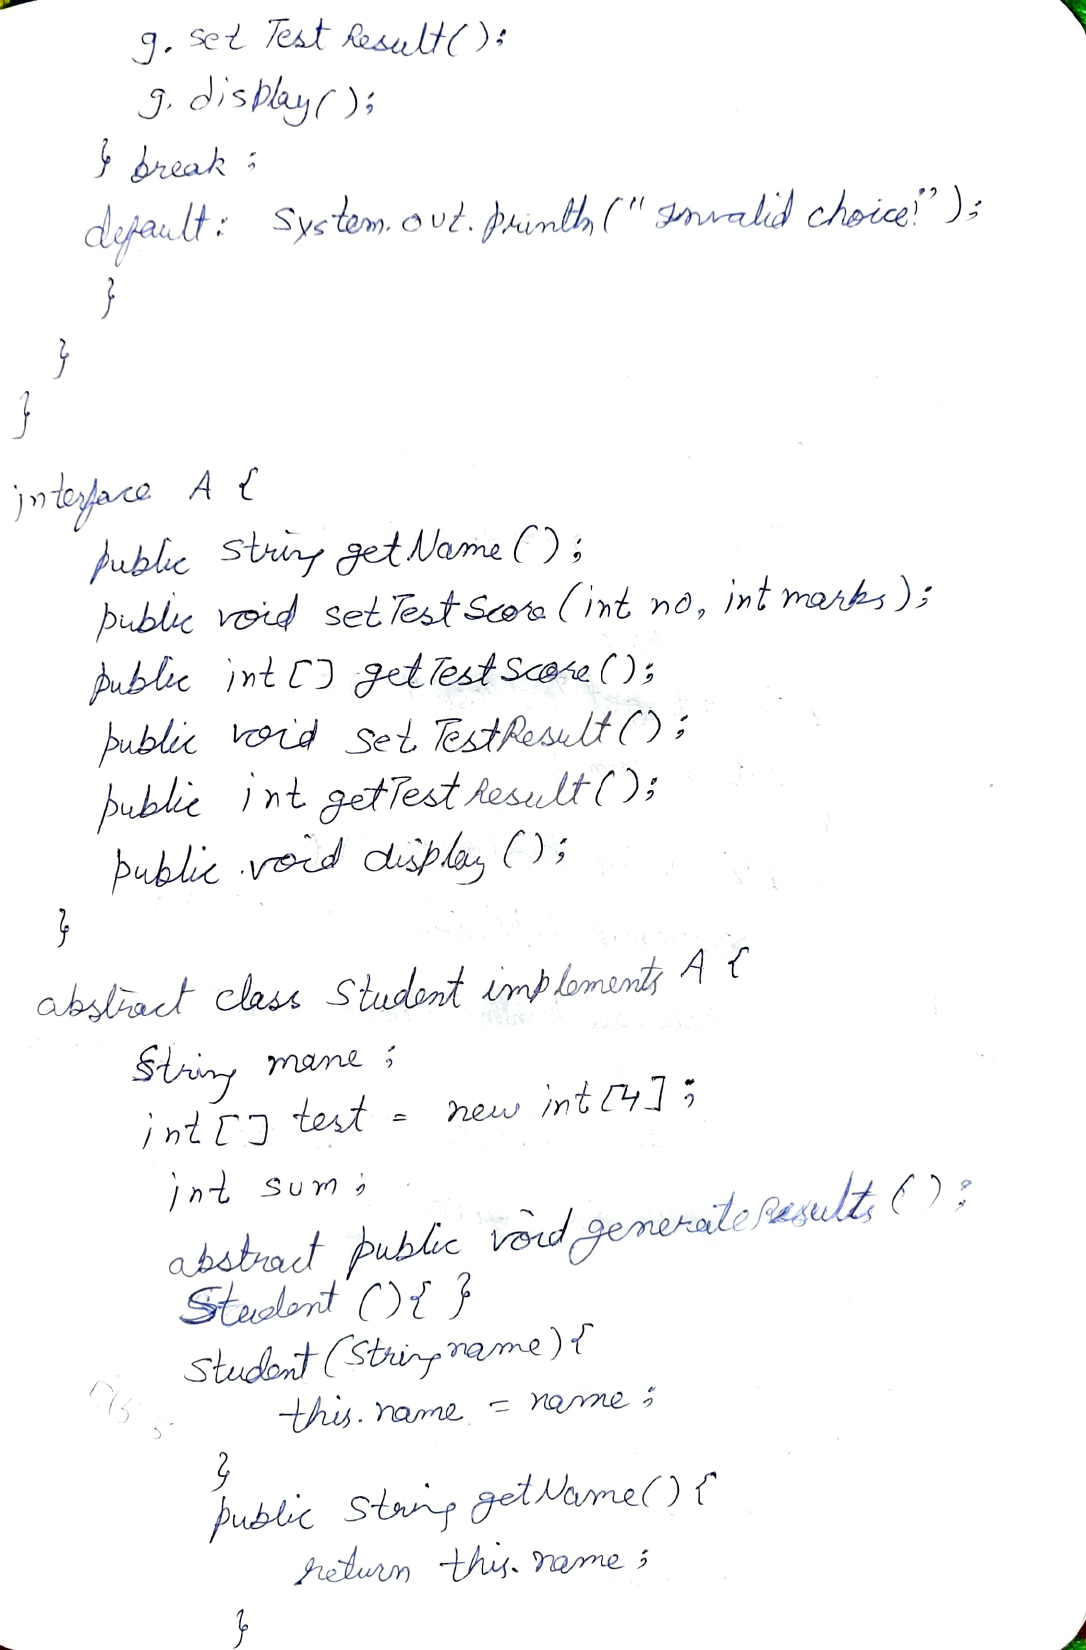 g. set Test Result();
g. display();
} break;
default: System.out.println("Invalid choice!");
}
}
}
interface A {
public String getName();
public void setTestScore(int no, int marks);
public int[] getTestScore();
public void set TestResult();
public int getTestResult();
public void display();
}
abstract class Student implements A {
String mane;
int[] test = new int[4];
int sum;
abstract public void generateResults();
Student (){ }
Student (String name){
this. name = name;
}
public String getName(){
return this. name;
}